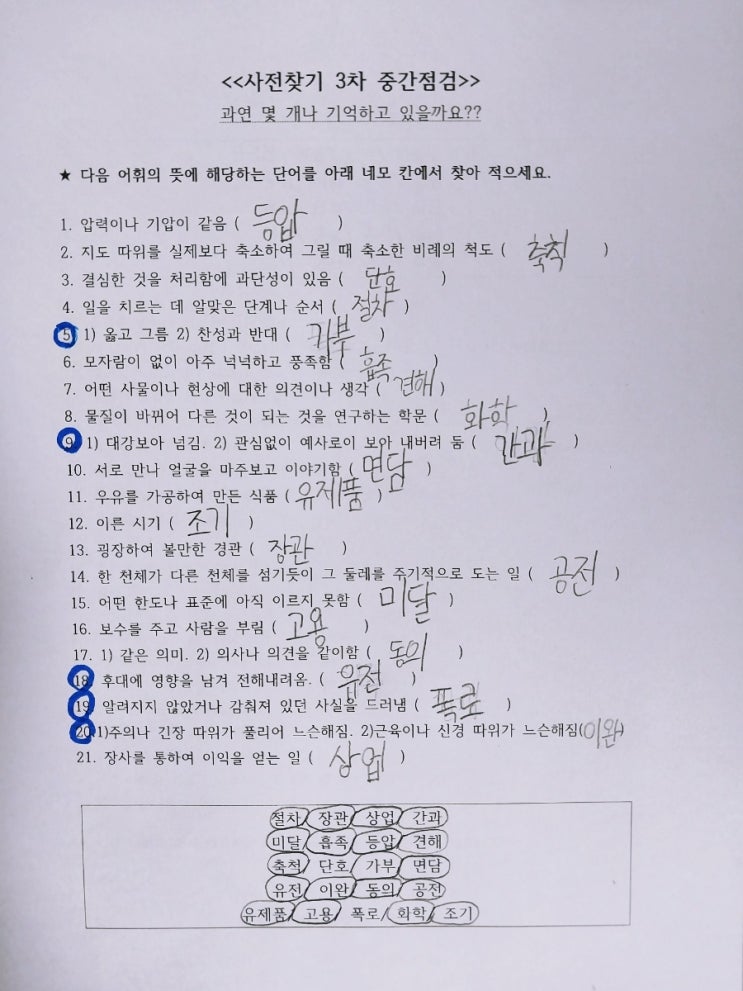 <<사전찾기 3차 중간점검>>
과연 몇 개나 기억하고 있을까요??
★ 다음 어휘의 뜻에 해당하는 단어를 아래 네모 칸에서 찾아 적으세요.
1. 압력이나 기압이 같음 ( 등압 )
2. 지도 따위를 실제보다 축소하여 그릴 때 축소한 비례의 척도 ( 축척 )
3. 결심한 것을 처리함에 과단성이 있음 ( 단호 )
4. 일을 치르는 데 알맞은 단계나 순서 ( 절차 )
5. 1) 옳고 그름 2) 찬성과 반대 ( 가부 )
6. 모자람이 없이 아주 넉넉하고 풍족함 ( 흡족 )
7. 어떤 사물이나 현상에 대한 의견이나 생각 ( 견해 )
8. 물질이 바뀌어 다른 것이 되는 것을 연구하는 학문 ( 화학 )
9. 1) 대강보아 넘김. 2) 관심없이 예사로이 보아 내버려 둠 ( 간과 )
10. 서로 만나 얼굴을 마주보고 이야기함 ( 면담 )
11. 우유를 가공하여 만든 식품 ( 유제품 )
12. 이른 시기 ( 조기 )
13. 굉장하여 볼만한 경관 ( 장관 )
14. 한 천체가 다른 천체를 섬기듯이 그 둘레를 주기적으로 도는 일 ( 공전 )
15. 어떤 한도나 표준에 아직 이르지 못함 ( 미달 )
16. 보수를 주고 사람을 부림 ( 고용 )
17. 1) 같은 의미. 2) 의사나 의견을 같이함 ( 동의 )
18. 후대에 영향을 남겨 전해내려옴. ( 유전 )
19. 알려지지 않았거나 감춰져 있던 사실을 드러냄 ( 폭로 )
20.1)주의나 긴장 따위가 풀리어 느슨해짐. 2)근육이나 신경 따위가 느슨해짐(이완)
21. 장사를 통하여 이익을 얻는 일 ( 상업 )
절차/ 장관/ 상업/ 간과
미달/ 흡족/ 등압/ 견해
축척/ 단호/ 가부/ 면담
유전/ 이완/ 동의/ 공전
유제품/ 고용/ 폭로/ 화학/ 조기